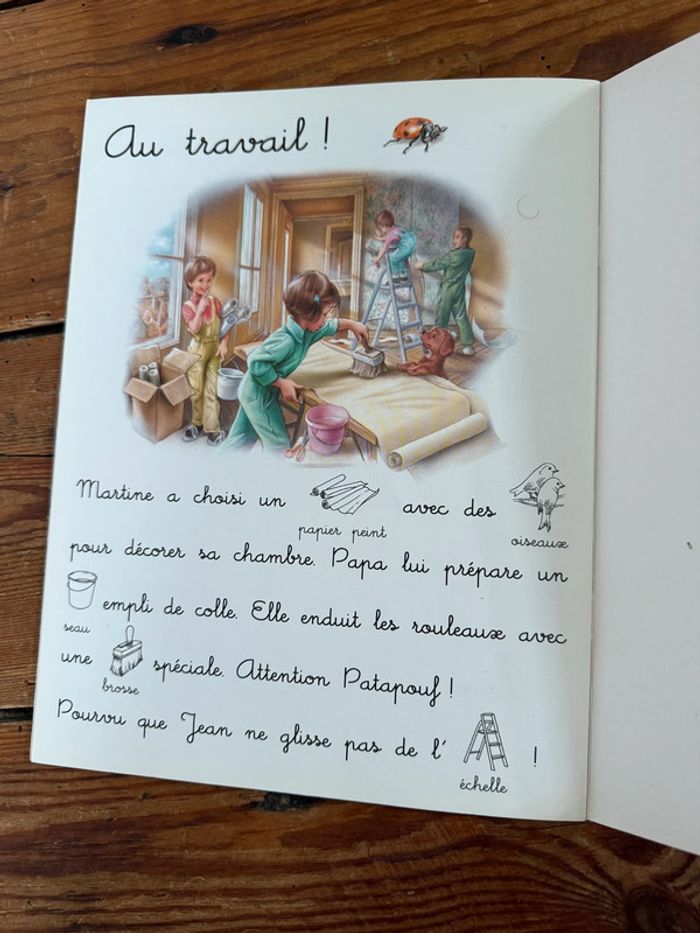 Au travail !
Martine a choisi un papier peint avec des oiseaux
pour décorer sa chambre. Papa lui prépare un
seau empli de colle. Elle enduit les rouleaux avec
une brosse spéciale. Attention Patapouf !
Pourvu que Jean ne glisse pas de l'échelle !